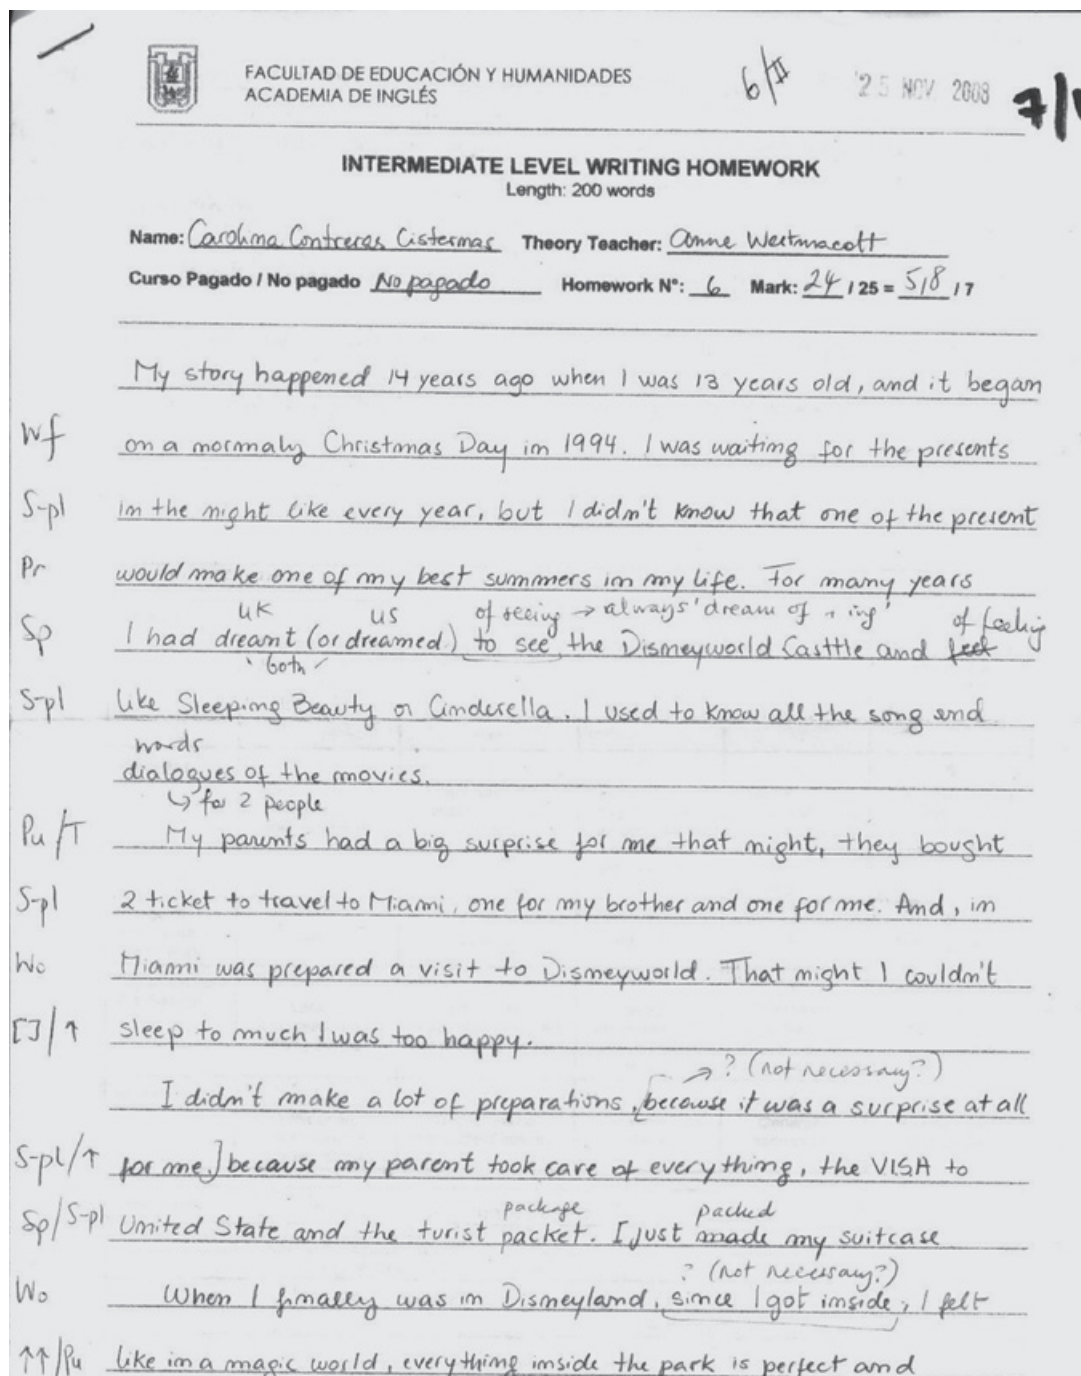 FACULTAD DE EDUCACIÓN Y HUMANIDADES
ACADEMIA DE INGLÉS
6/II
25 NOV. 2008
INTERMEDIATE LEVEL WRITING HOMEWORK
Length: 200 words
Name: Carolina Contreras Cisternas Theory Teacher: Anne Westmacott
Curso Pagado / No pagado No pagado Homework N°: 6 Mark: 24 / 25 = 5,8 / 7
My story happened 14 years ago when I was 13 years old, and it began
Wf on a normaly Christmas Day in 1994. I was waiting for the presents
S-pl in the night like every year, but I didn't know that one of the present
Pr would make one of my best summers in my life. For many years
UK US of seeing → always 'dream of + ing' of feeling
Sp I had dreamt (or dreamed) to see the Disneyworld Casttle and feel
both
S-pl like Sleeping Beauty or Cinderella. I used to know all the song and
words
dialogues of the movies.
↳ for 2 people
Pu/T My parents had a big surprise for me that night, they bought
S-pl 2 ticket to travel to Miami, one for my brother and one for me. And, in
Wo Miami was prepared a visit to Disneyworld. That night I couldn't
[]/↑ sleep to much I was too happy.
→ ? (not necessary?)
I didn't make a lot of preparations, [because it was a surprise at all
S-pl/↑ for me,] because my parent took care of everything, the VISA to
package packed
Sp/S-pl United State and the turist packet. I just made my suitcase
? (not necessary?)
Wo When I finally was in Disneyland, since I got inside, I felt
↑↑/Pu like in a magic world, everything inside the park is perfect and